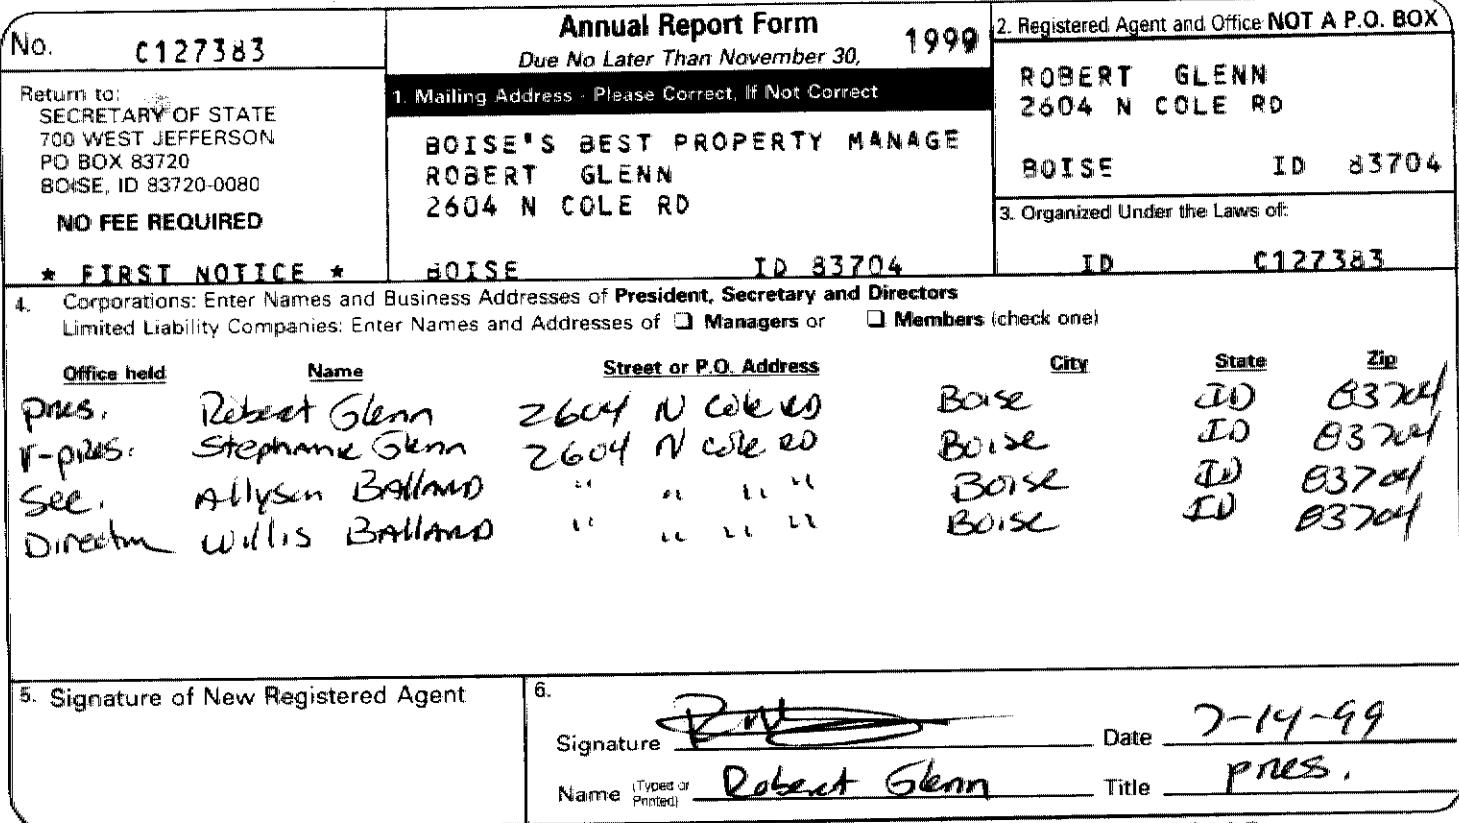 No. C127383
Return to:
SECRETARY OF STATE
700 WEST JEFFERSON
PO BOX 83720
BOISE, ID 83720-0080
NO FEE REQUIRED
* FIRST NOTICE *
Annual Report Form 1999
Due No Later Than November 30,
1. Mailing Address - Please Correct, If Not Correct
BOISE'S BEST PROPERTY MANAGE
ROBERT GLENN
2604 N COLE RD
BOISE ID 83704
2. Registered Agent and Office NOT A P.O. BOX
ROBERT GLENN
2604 N COLE RD
BOISE ID 83704
3. Organized Under the Laws of:
ID C127383
4. Corporations: Enter Names and Business Addresses of President, Secretary and Directors
Limited Liability Companies: Enter Names and Addresses of ❏ Managers or ❏ Members (check one)
Office held Name Street or P.O. Address City State Zip
pres. Robert Glenn 2604 N Cole RD Boise ID 83704
V-pres. Stephanie Glenn 2604 N Cole RD Boise ID 83704
Sec. Allyson BAllARD " " " " Boise ID 83704
Director Willis BAllARD " " " " Boise ID 83704
5. Signature of New Registered Agent
6.
Signature Date 7-14-99
Name (Typed or Printed) Robert Glenn Title pres.